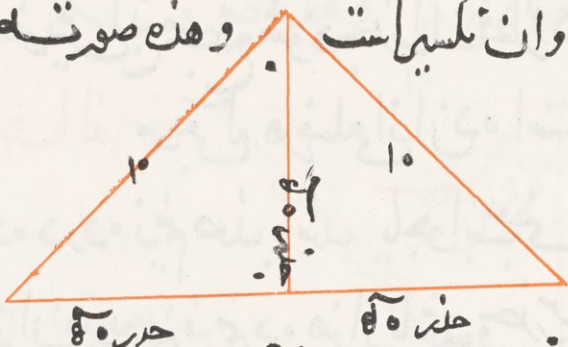 وان تكسير است وهذه صورته
١٠ ١٠
جذر ٥٠ جذر ٥٠